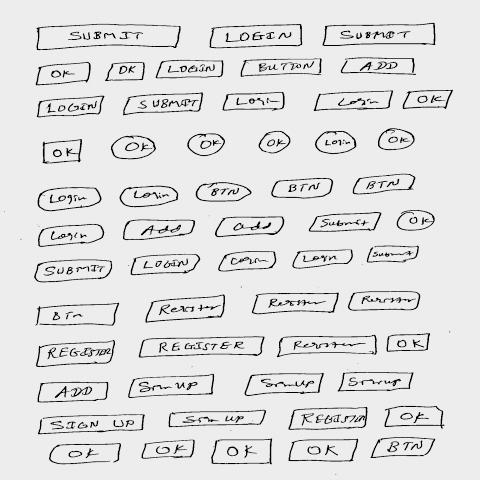 SUBMIT LOGIN SUBMIT
OK OK LOGIN BUTTON ADD
LOGIN SUBMIT Login Login OK
OK OK OK OK Login OK
Login Login BTN BTN BTN
Login Add add Submit OK
SUBMIT LOGIN Login Login Submit
BTn Register Register Register
REGISTER REGISTER Register OK
ADD SignUp SignUp Signup
SIGN UP Sign up REGISTER OK
OK OK OK OK BTN